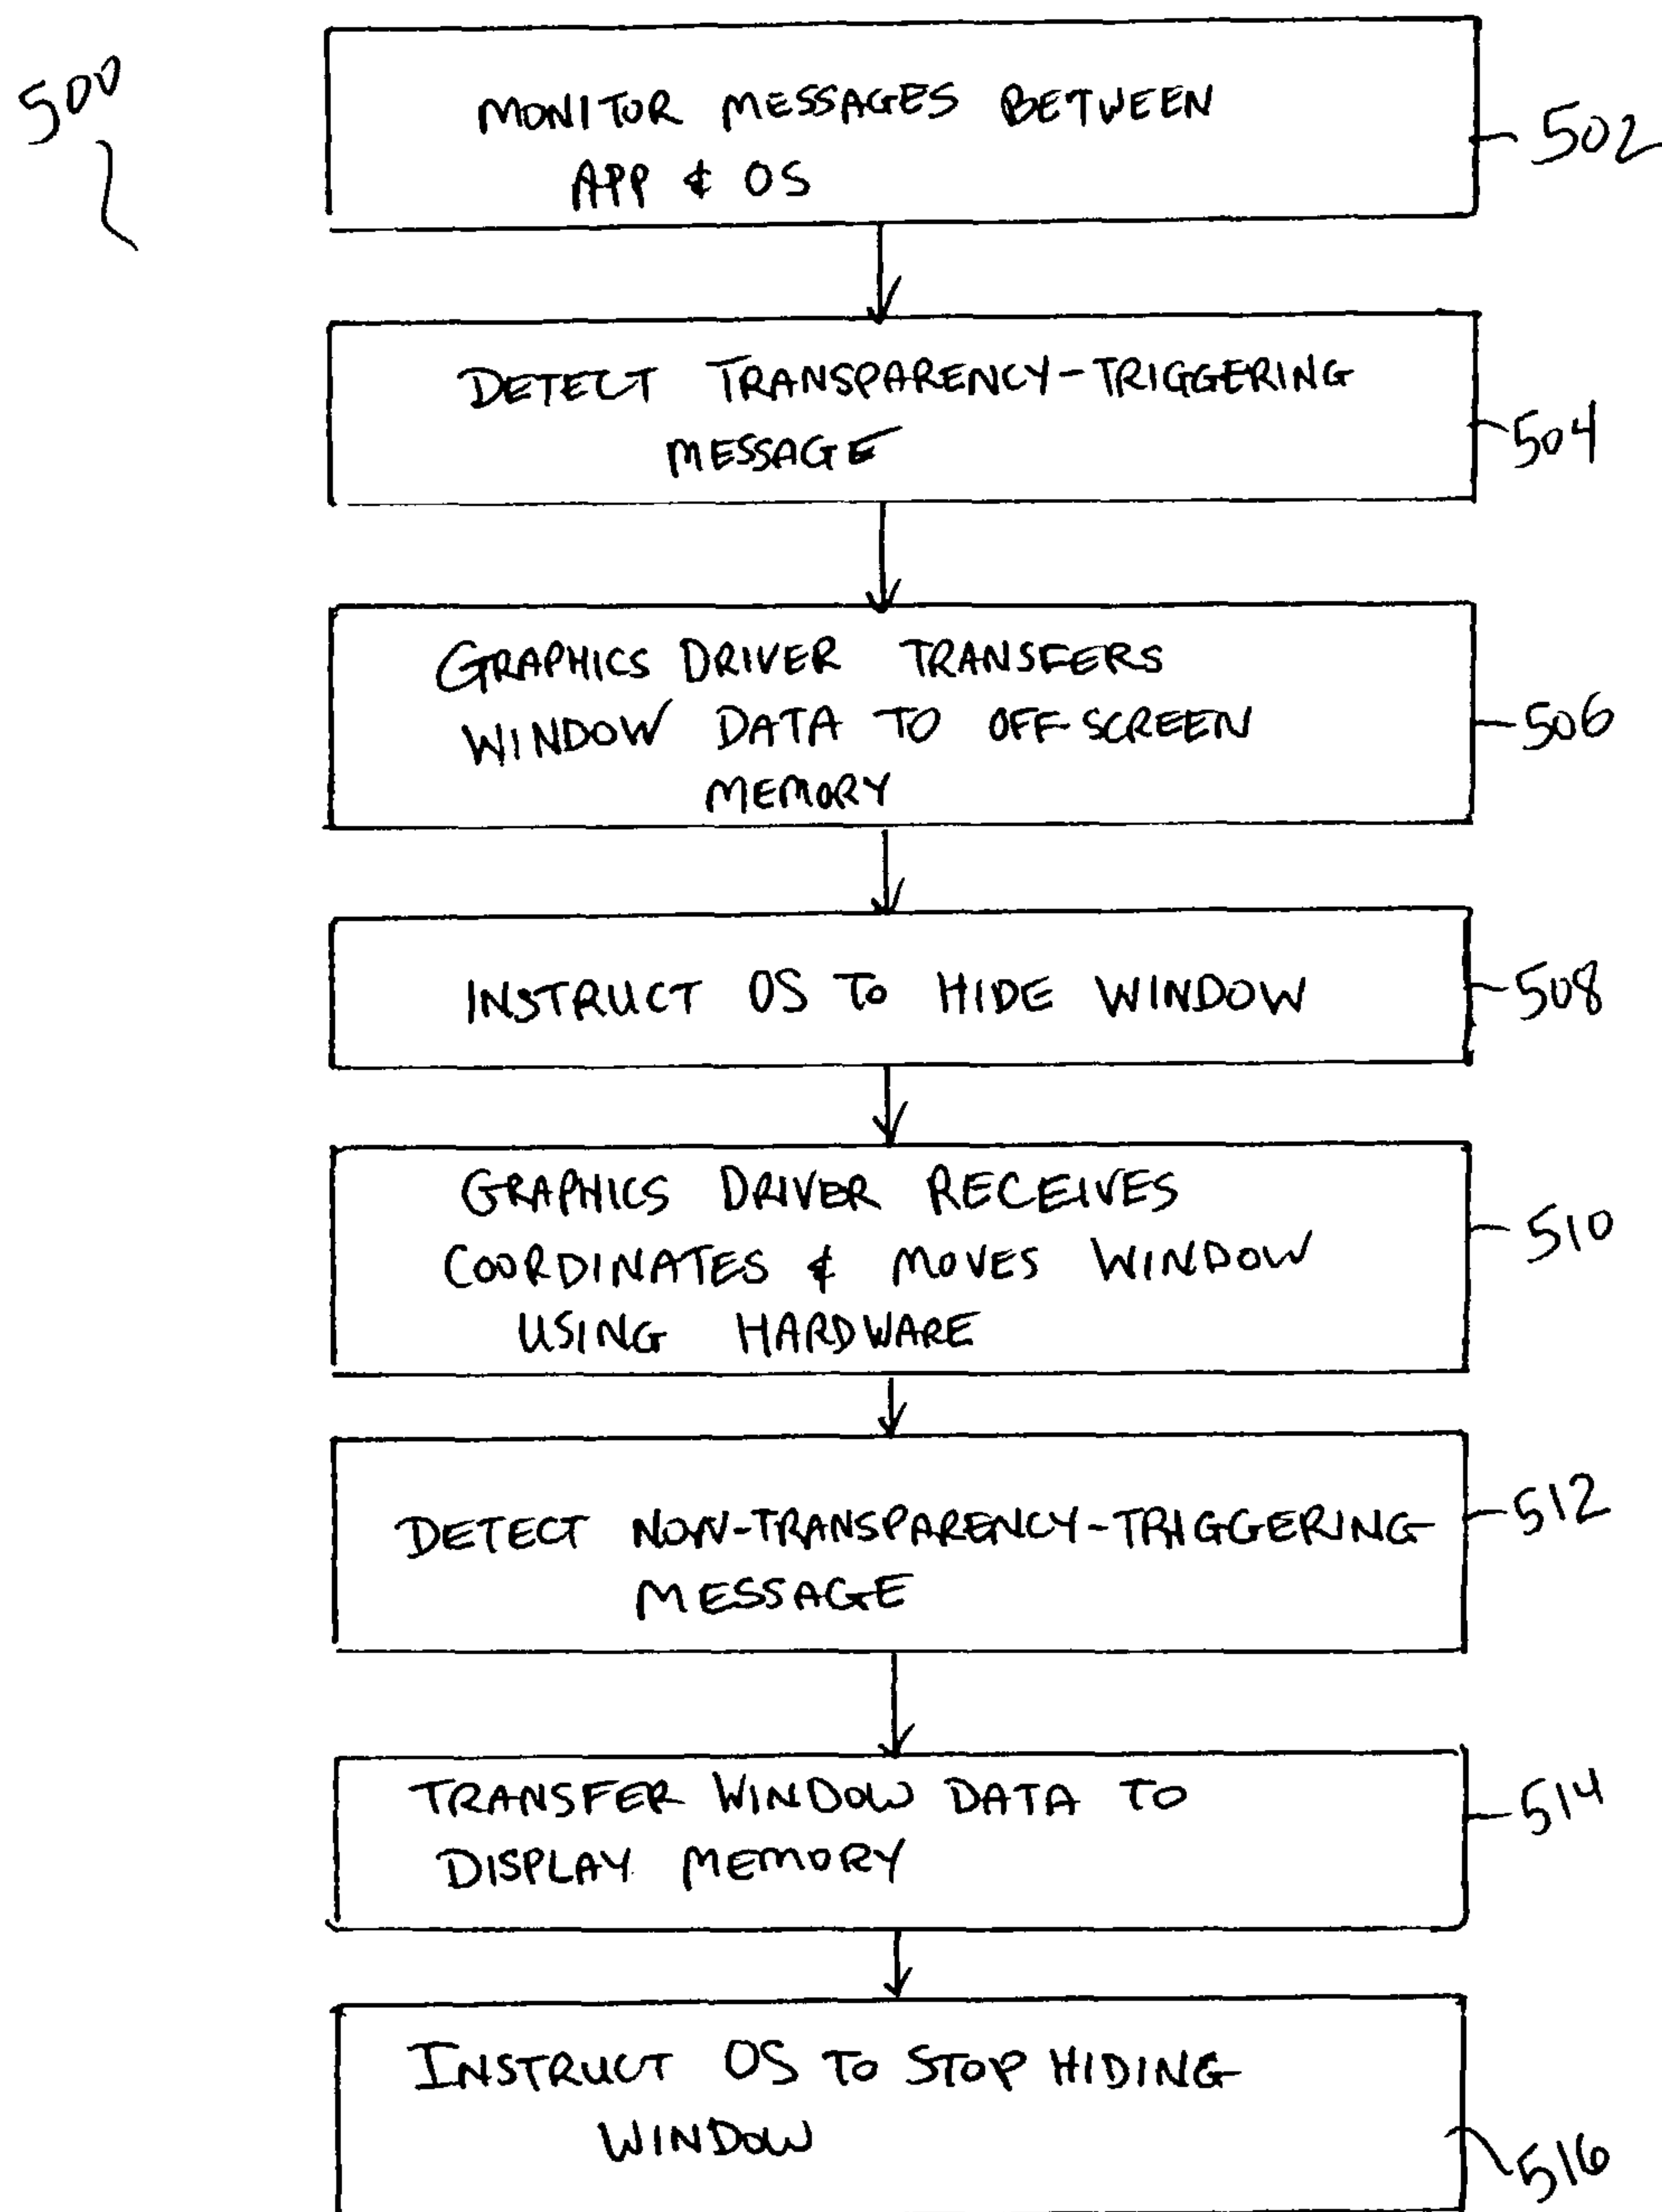 500
MONITOR MESSAGES BETWEEN
APP & OS
502
DETECT TRANSPARENCY-TRIGGERING
MESSAGE
504
GRAPHICS DRIVER TRANSFERS
WINDOW DATA TO OFF-SCREEN
MEMORY
506
INSTRUCT OS TO HIDE WINDOW
508
GRAPHICS DRIVER RECEIVES
COORDINATES & MOVES WINDOW
USING HARDWARE
510
DETECT NON-TRANSPARENCY-TRIGGERING
MESSAGE
512
TRANSFER WINDOW DATA TO
DISPLAY MEMORY
514
INSTRUCT OS TO STOP HIDING
WINDOW
516